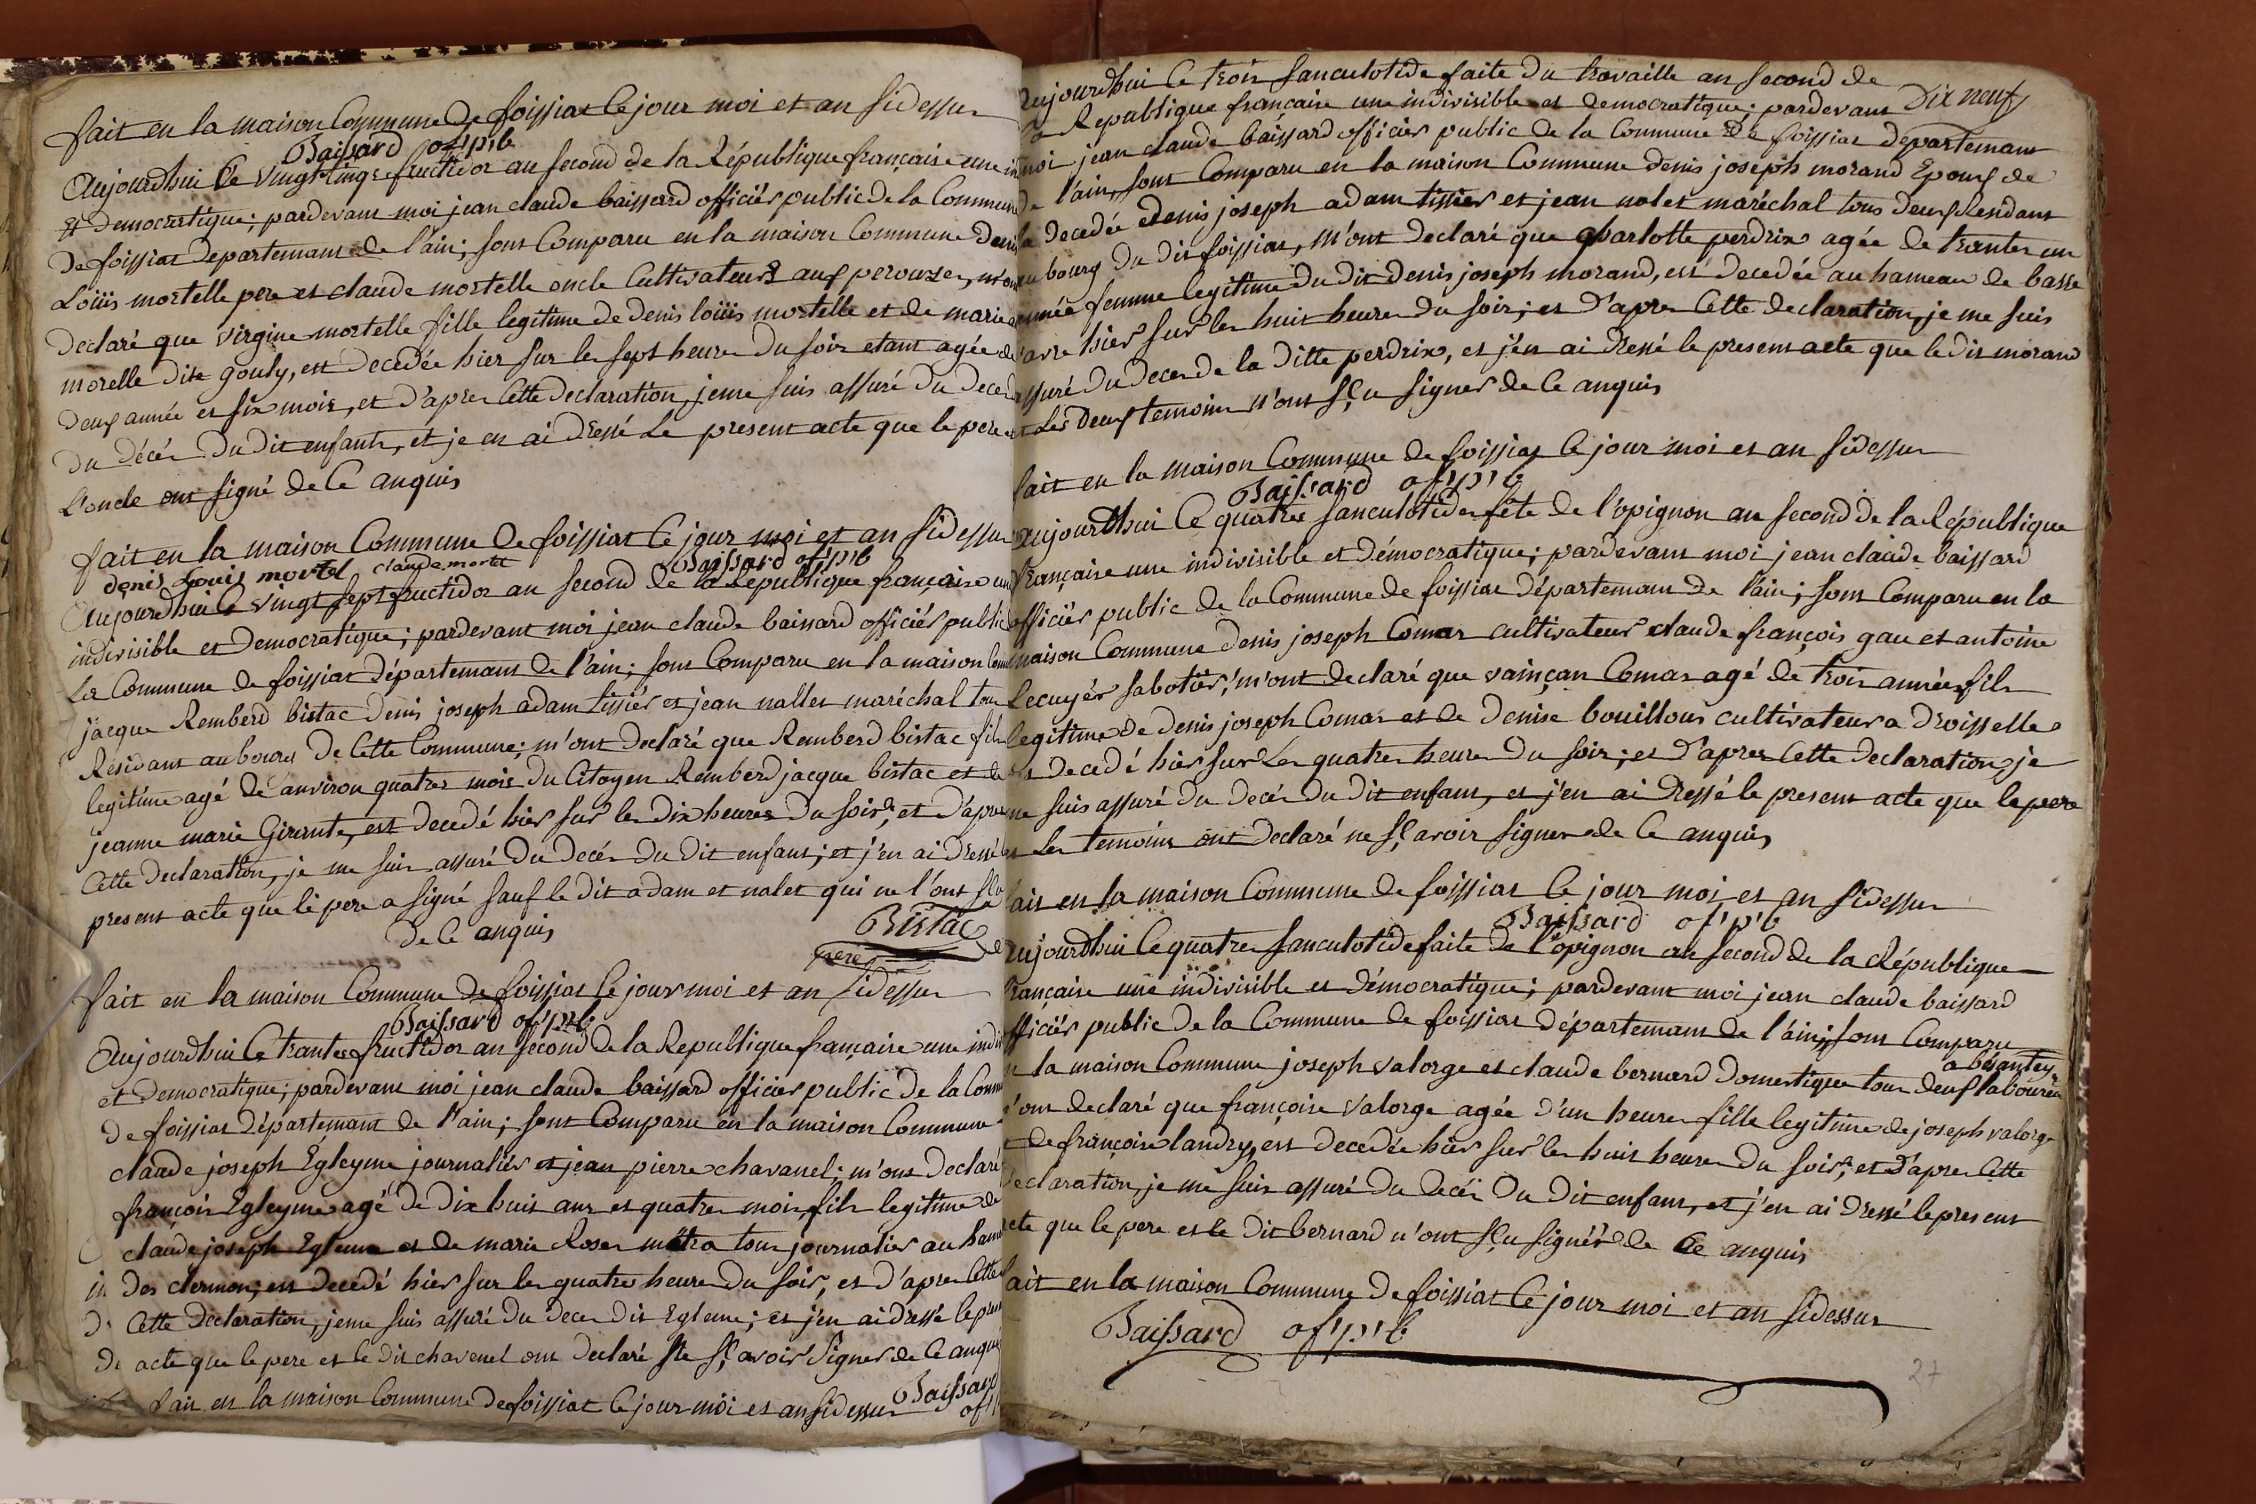 fait en la maison Commune de foissiat le jour moi et an sidessu
Baissard of'p'b
Aujourdhui le vingt cinqs fructidor an second de la République française une in
et democratique; pardevant moi jean claude baissard officiés public de la Commune
de foissiat departemant de l'ain; sont Comparu en la maison Commune denis
Loüis mortelle pere et claude mortelle oncle Cultivateurs auf perouze, m'on
declaré que virgine mortelle fille legitime de denis loüis mortelle et de marie
morelle dite gouly, est decedée hier sur les sept heure du soir etant agée de
deuf année et six mois, et d'apres Cette declaration jeme suis assuré du dece
du décés du dit enfant, et je en ai dressé Le present acte que le pere et
l'oncle ont signé de Ce anquis
fait en la maison Commune de foissiat le jour moi et an sidessu
denis Louis mortel claude mortel Baissard of'p'b
Aujourdhui le vingt sept fructidor an second de la Republique française une
indivisible et democratique; pardevant moi jean claude baissard officiés public
La Commune de foissiat département de l'ain; sont Comparu en la maison Com
jacque Remberd bistac denis joseph adam tissiés et jean nallet maréchal tou
Residant au bourg de Cette Commune; m'ont declaré que Remberd bistac fils
legitime agé de anviron quatres mois du Citoyen Remberd jacque bistac et de
jeanne marie Girerute, est decedé hier sur les dix heures du soir; et d'apres
Cette declaration, je me suis assuré du decés du dit enfant; et j'en ai dressé le
present acte que le pere a signé sauf le dit adam et nalet qui ne l'ont sçu
de Ce anquis
Bistac
pere
fait en la maison Commune de foissiat le jour moi et an sidessu
Baissard of'p'b
Aujourdhui le trante fructidor an second de la Republique française une indi
et democratique; pardevant moi jean claude baissard officiés public de la Comm
de foissiat département de l'ain; sont Comparu en la maison Commune
claude joseph Egleyme journaliés et jean pierre chavanel; m'ont declaré
françois Egleyme agé de dix huit ans et quatre mois fils legitime de
claude joseph Egleme et de marie Rose mêtra tous journaliés au ham
des clermon; est decedé hier sur les quatre heure du soir, et d'apres Cette
Cette declaration, jeme suis assuré du deces dit Egleme; et j'en ai dressé le pres
acte que le pere et le dit chavenel ont declaré ne sçavoir signer de Ce anqui
fait en la maison Commune de foissiat le jour moi et an sidessus Baissard
of'
Aujourdhui le trois sanculotide faite du travaille an second de
Dix neuf
la Republique française une indivisible et democratique; pardevant
moi jean claude baissard officiés public de la Commune de foissiat departemant
de l'ain, sont Comparu en la maison Commune denis joseph morand Epouf de
la decedée denis joseph adam tissiés et jean nalet maréchal tous deuf Rendant
au bourg du dit foissiat, m'ont declaré que charlotte perdrix agée de trante un
année femme legitime du dit denis joseph morand, est decedée au hameau de basse
varre hier sur les huit heure du soir; et d'apres Cette declaration, je me suis
assuré du deces de la ditte perdrix, et j'en ai dressé le present acte que le dit morand
et Les deuf temoins n'ont sçu signer de Ce anquis
fait en la maison Commune de foissiat le jour moi et an sidessu
Baissard of'p'b
Aujourdhui le quatre sanculotide fête de l'opignon an second de la République
française une indivisible et démocratique; pardevant moi jean claude baissard
officiés public de la Commune de foissiat département de l'ain; sont Comparu en la
maison Commune denis joseph Comas cultivateur claude françois gau et antoine
Lecuyér sabotiér, m'ont declaré que vainçan Comas agé de trois années fils
legitime de denis joseph Comas et de denise bouillous cultivateur a droisselle
est decedé hier sur Les quatre heure du soir; et d'apres Cette declaration, je
me suis assuré du decés du dit enfant, et j'en ai dressé le present acte que le pere
et les temoins ont declaré ne sçavoir signer de Ce anquis
fait en la maison Commune de foissiat le jour moi et an sidessu
Baissard of'p'b
Aujourdhui le quatre sanculotide faite de l'opignon an second de la République
française une indivisible et démocratique; pardevant moi jean claude baissard
officiés public de la Commune de foissiat département de l'ain; sont Comparu
en la maison Commune joseph valorge et claude bernard domestique tous deuf laboureur
a bésantey
m'ont declaré que françoise valorge agée d'un heure fille legitime de joseph valorge
et de françoise landry, est decedée hier sur les huit heure du soir; et d'apres Cette
declaration, je me suis assuré du decés du dit enfant, et j'en ai dressé le present
acte que le pere et le dit bernard n'ont sçu signér de Ce anquis
fait en la maison Commune de foissiat le jour moi et an sidessus
Baissard of'p'b
27